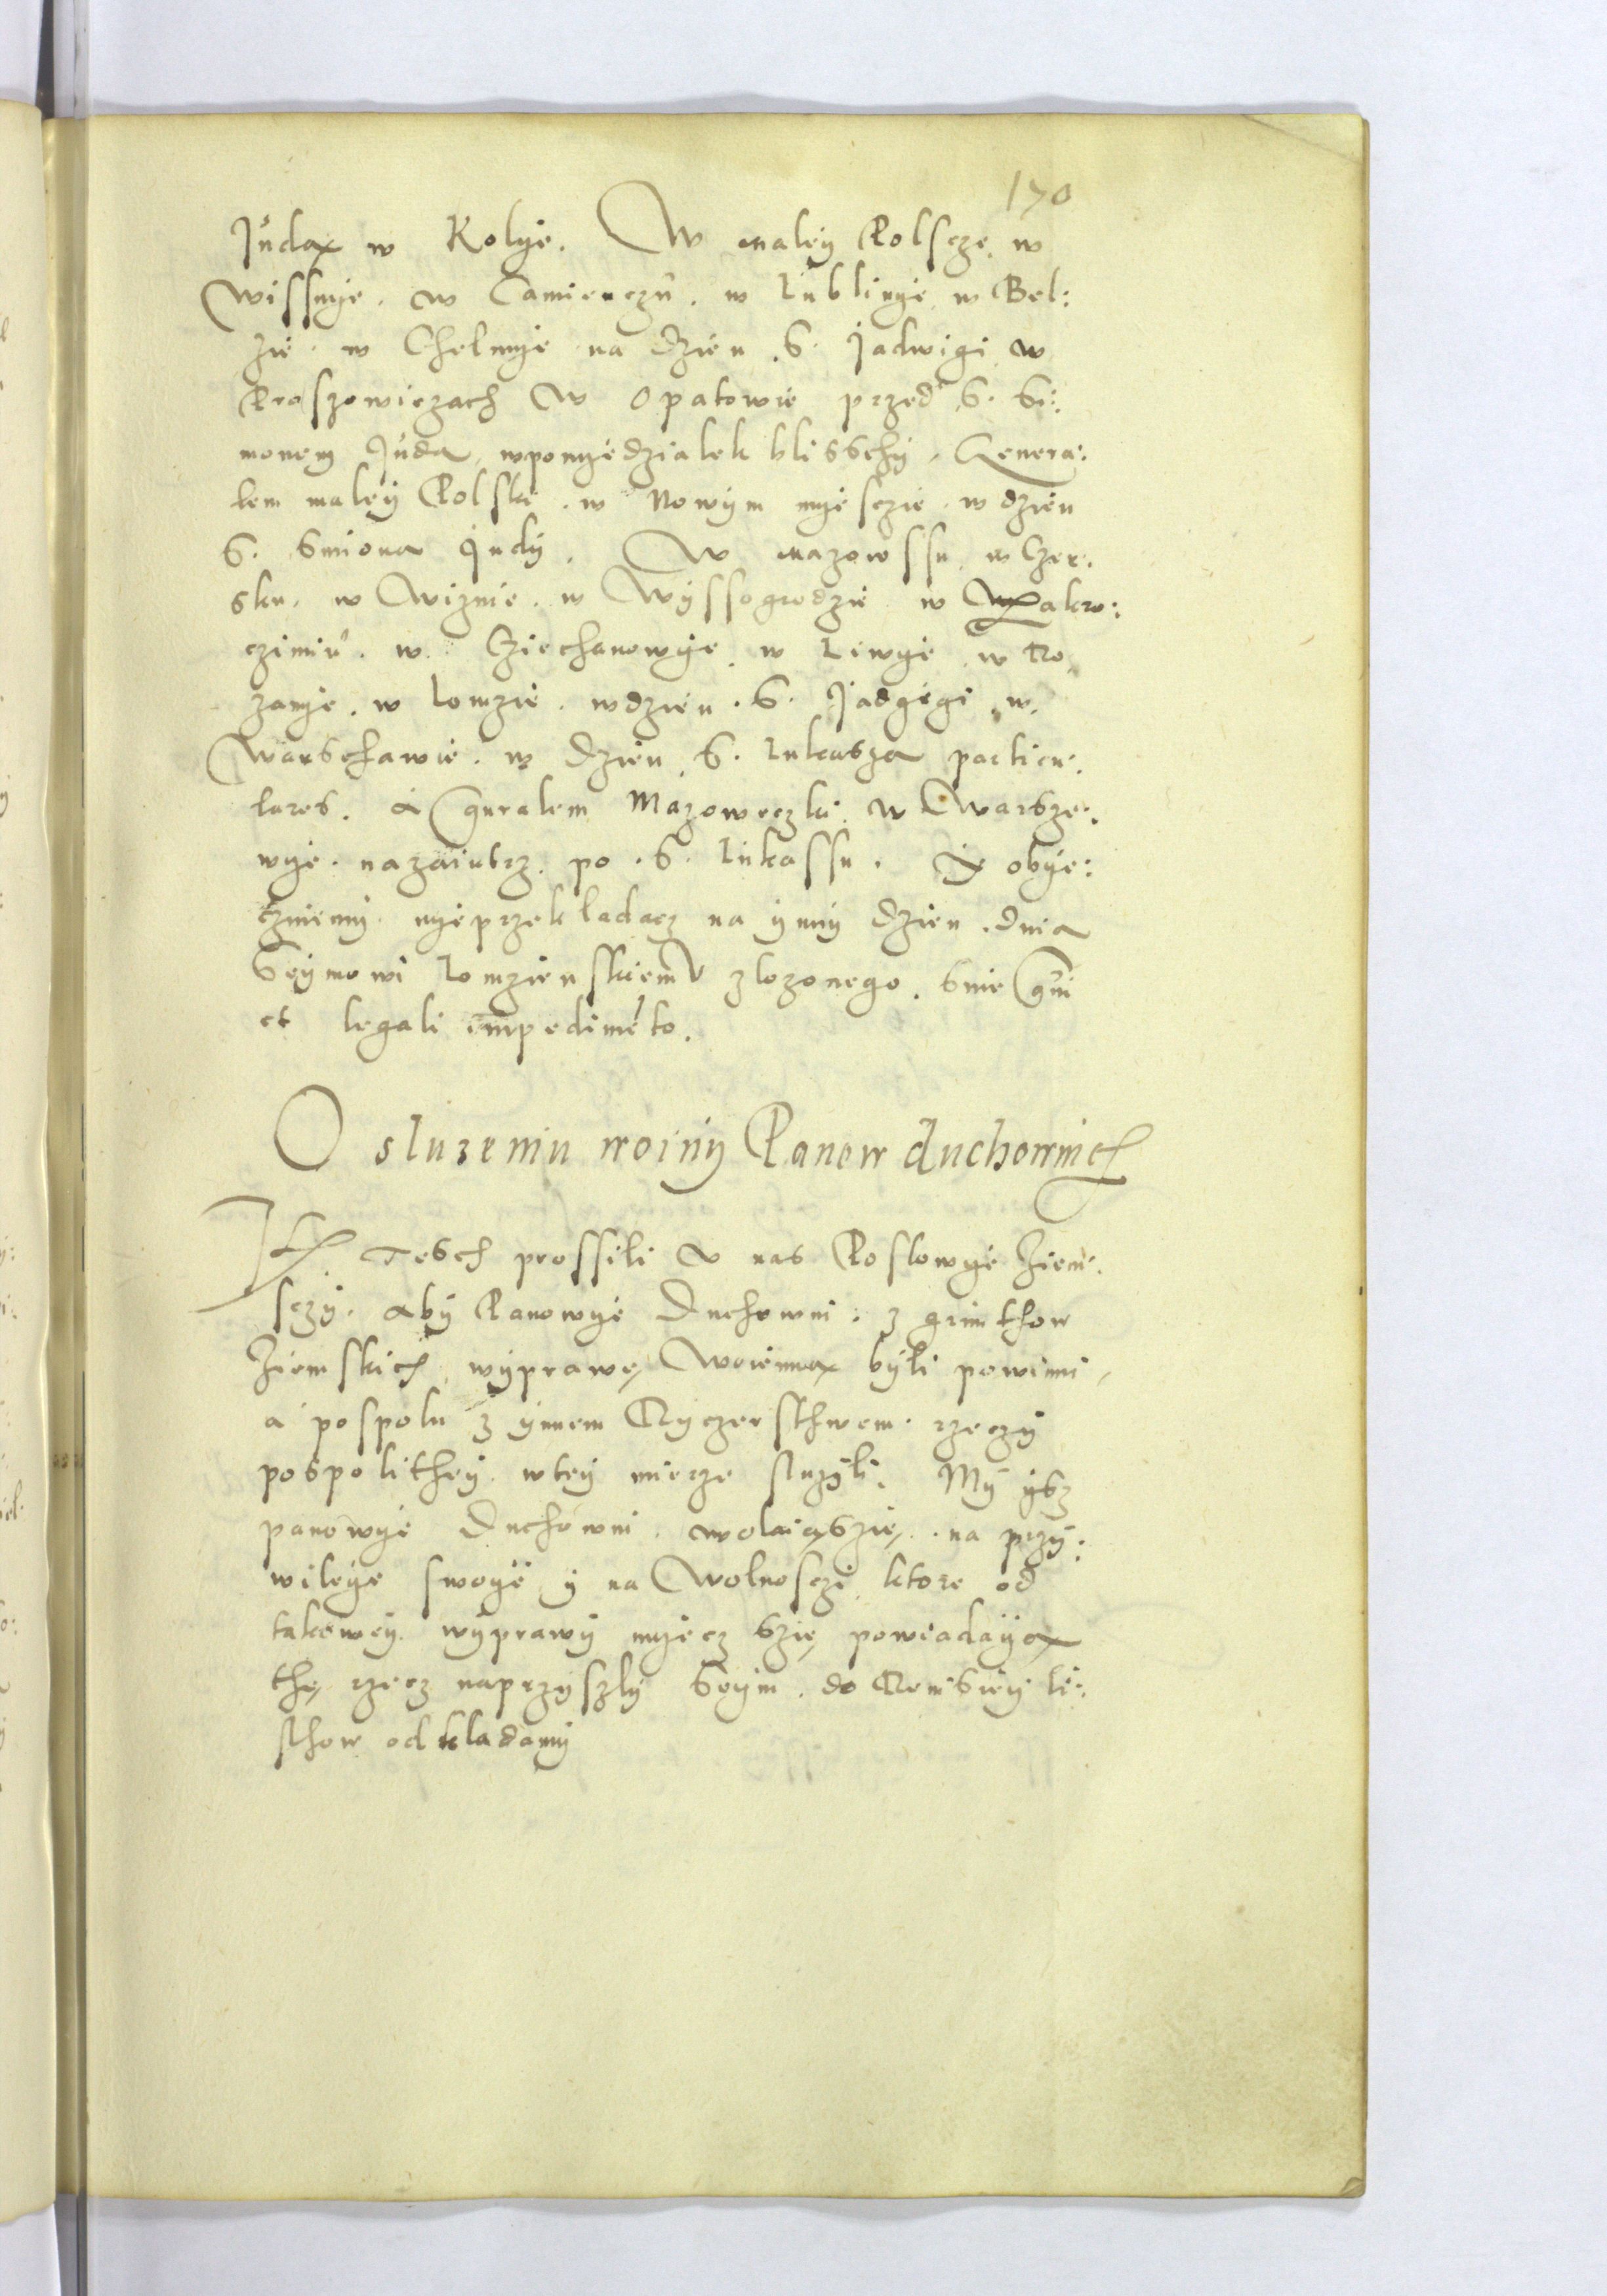 170
Judą w Kolye. W maley Polscze. w
Wissnye. w Camienczu. w Lublinye w Bel:
zie. w Chelmye na dzien. S. Jadwigi w
Proszowiczach W Opatowie przed S. Si:
monem Juda, wponyedzialek blisschy. Genera:
lem maley Polski. w Nowym myesczie. w dzien
S. Smiona Judy. W mazowssu w Czer:
sku. w Wiznie. w Wyssogrodzie w Zakro:
czimiu. w Cziechanowye. w Liwye w Ro
zanye. w Lomzie. wdzien. S. Jadgegi w.
Warschawie. w dzien. S. Lukasza particu:
lares. A Gnralem Mazoweczki. w Warsze:
wye. nazaiutrz. po. S. Lukassu. Y obye:
czniemy nyeprzekladacz na ynny dzien. dnia
Seymowi Lomzienskiemu zlozonego. Sine
et legali impedimeto.
O sluzeniu woiny Panow duchownich
Tesch prossili v nas Poslowye Ziem:
sczy. aby Panowye Duchowni. z grunthow
Ziemskich wyprawę Woienną byli powinni
a pospolu z ynnem Ryczersthwem. rzeczy
pospolithey. wtey mierze sluzyli. My ysz
panowye Duchowni. wolaiąszię. na przy:
wileye swoye y na Wolnosczi ktore od
takowey. wyprawy myecz szię powiadayą
thę rzecz naprzyszly Seym. do Rewisiey li:
sthow odkladamy